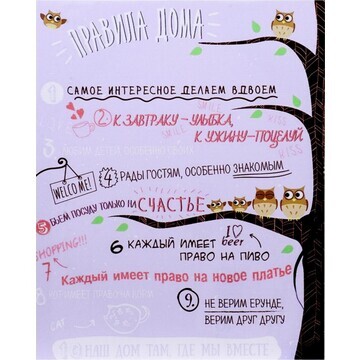 ПРАВИЛА ДОМА
САМОЕ ИНТЕРЕСНОЕ ДЕЛАЕМ ВДВОЕМ
2. К ЗАВТРАКУ - УЛЫБКА,
К УЖИНУ - ПОЦЕЛУЙ
WELCOME!
4. РАДЫ ГОСТЯМ, ОСОБЕННО ЗНАКОМЫМ
5. БЬЕМ ПОСУДУ ТОЛЬКО НА СЧАСТЬЕ
I
6 КАЖДЫЙ ИМЕЕТ beer
ПРАВО НА ПИВО
SHOPPING!!!
7 Каждый имеет право на новое платье
9. НЕ ВЕРИМ ЕРУНДЕ,
ВЕРИМ ДРУГ ДРУГУ
НАШ ДОМ ТАМ, ГДЕ МЫ ВМЕСТЕ